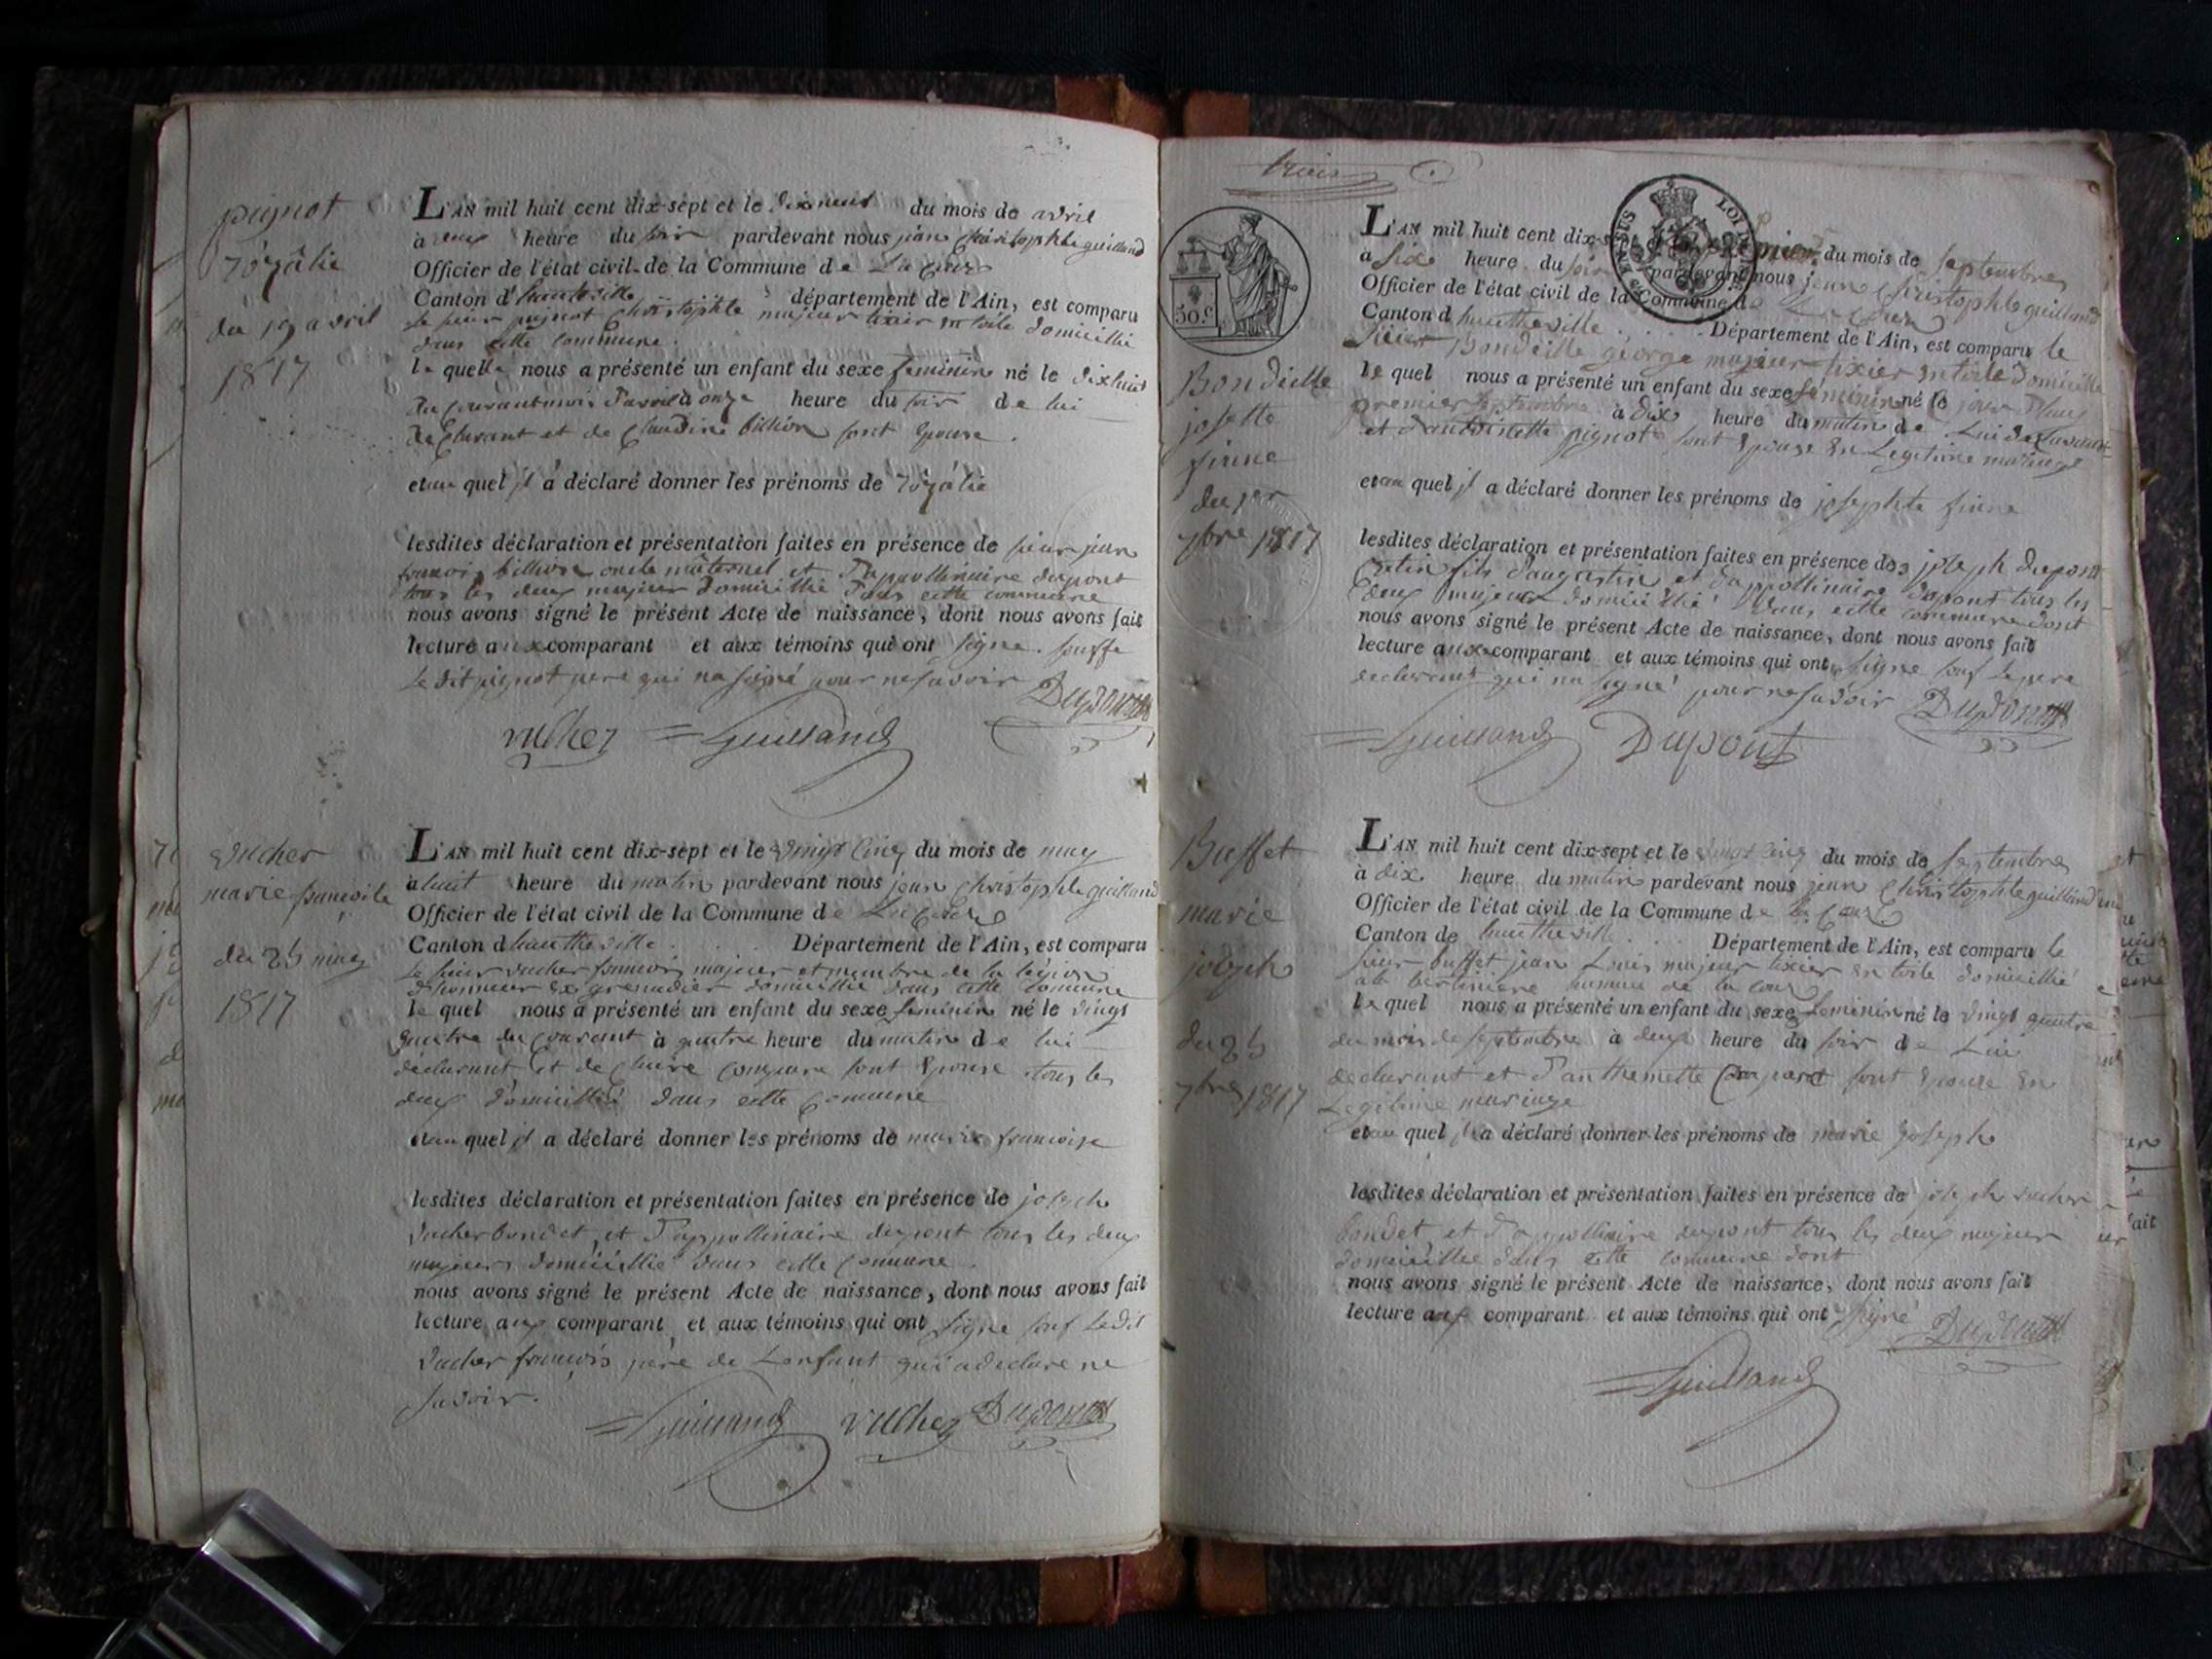 pignot
rozalie
du 19 avril
1817
L'AN mil huit cent dix-sept et le dixneuf du mois de avril
à deux heure du soir pardevant nous jean christophle guilland
Officier de l'état civil de la Commune de La Cour
Canton d'hauteville département de l'Ain, est comparu
le sieur pignot christophle majeur tixier en toile domicillié
dans cette commune.
le quelle nous a présenté un enfant du sexe feminin né le dixhuit
du courant mois d'avril à onze heure du soir de lui
declarant et de claudine billion sont epouse.
et au quel jl a déclaré donner les prénoms de rozalie
lesdites déclaration et présentation faites en présence de sieur jean
francois billion oncle maternel et d'appollinaire dupont
tous les deux majeur domicillié dans cette commune
nous avons signé le présent Acte de naissance, dont nous avons fait
lecture aux comparant et aux témoins qui ont signe. souffe
Le dit pignot pere qui na signé pour ne savoir
Dupont
vucher Guilland
vucher
marie francoise
du 25 may
1817
L'AN mil huit cent dix-sept et le vingt cinq du mois de may
à huit heure du matin pardevant nous jean christophle guilland
Officier de l'état civil de la Commune de La Cour
Canton d hautheville Département de l'Ain, est comparu
le sieur vucher francois majeur et membre de la légion
d'honneur ex grenadier domicillié dans cette commune
le quel nous a présenté un enfant du sexe feminin né le vingt
quatre du courant à quatre heure du matin de lui
déclarant et de claire compare sont epouse tous les
deux domicillié dans cette commune
et au quel jl a déclaré donner les prénoms de marie francoise
lesdites déclaration et présentation faites en présence de joseph
vucher bondet, et d'appollinaire dupont tous les deux
majeurs domicillié dans cette commune
nous avons signé le présent Acte de naissance, dont nous avons fait
lecture aux comparant et aux témoins qui ont signe souf Ledit
vucher francois père de Lenfant qui a declare ne
savoir.
Guilland vucher Dupont
trois
50.c
Bondielle
josette
finne
du 1er
7bre 1817
L'AN mil huit cent dix-sept et le premier du mois de septembre
à six heure du soir pardevant nous jean christophle guilland
Officier de l'état civil de la Commune de La Cour
Canton d hautheville Département de l'Ain, est comparu le
sieur Bondielle george majeur tixier en toile domicillié
le quel nous a présenté un enfant du sexe feminin né le jour d'huy
premier septembre à dix heure du matin de Lui declarant
et d'antoinette pignot sont epouse en Legitime mariage
et au quel jl a déclaré donner les prénoms de josephte finne
lesdites déclaration et présentation faites en présence des joseph dupont
fils d'augustin et d'appollinaire dupont tous les
deux majeur domicillié dans cette commune dont
nous avons signé le présent Acte de naissance, dont nous avons fait
lecture aux comparant et aux témoins qui ont signe souf Le pere
declarant qui na signé pour ne savoir
Dupont
Guilland Dupont
Buffet
marie
joseph
du 25
7bre 1817
L'AN mil huit cent dix-sept et le vingt cinq du mois de septembre
à dix heure du matin pardevant nous jean christophle guilland
Officier de l'état civil de la Commune de la Cour
Canton de hautheville Département de l'Ain, est comparu le
sieur buffet jean Louis majeur tixier en toile domicillié
de la cour
le quel nous a présenté un enfant du sexe feminin né le vingt quatre
du mois de septembre à deux heure du soir de Lui
declarant et d'anthemette sont epouze en
Legitime mariage
et au quel jl a déclaré donner les prénoms de marie joseph
lesdites déclaration et présentation faites en présence de joseph vucher
bondet, et d'appollinaire dupont tous les deux majeur
domicillie dans cette commune dont
nous avons signé le présent Acte de naissance, dont nous avons fait
lecture aux comparant et aux témoins qui ont signé
Dupont
Guilland